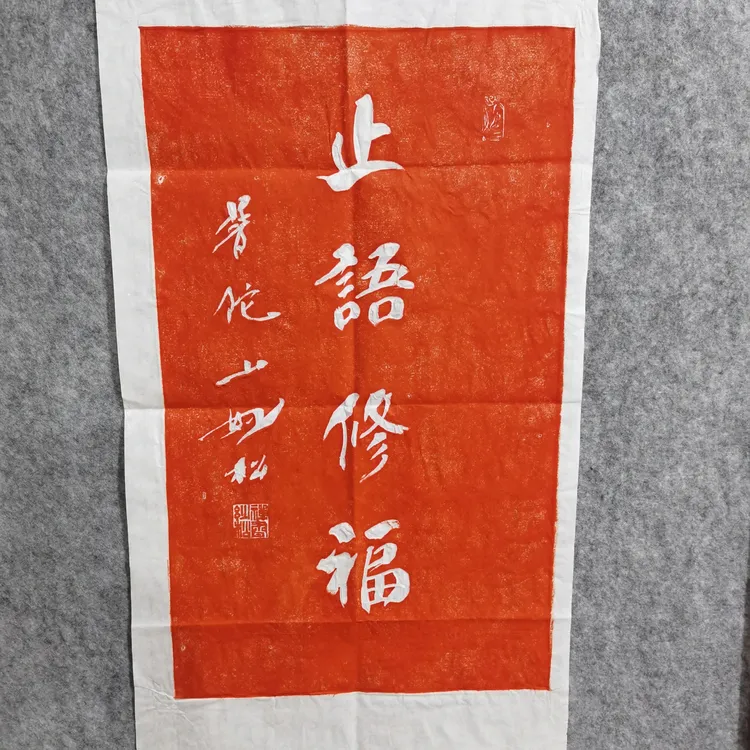 止語修福
普陀山妙松